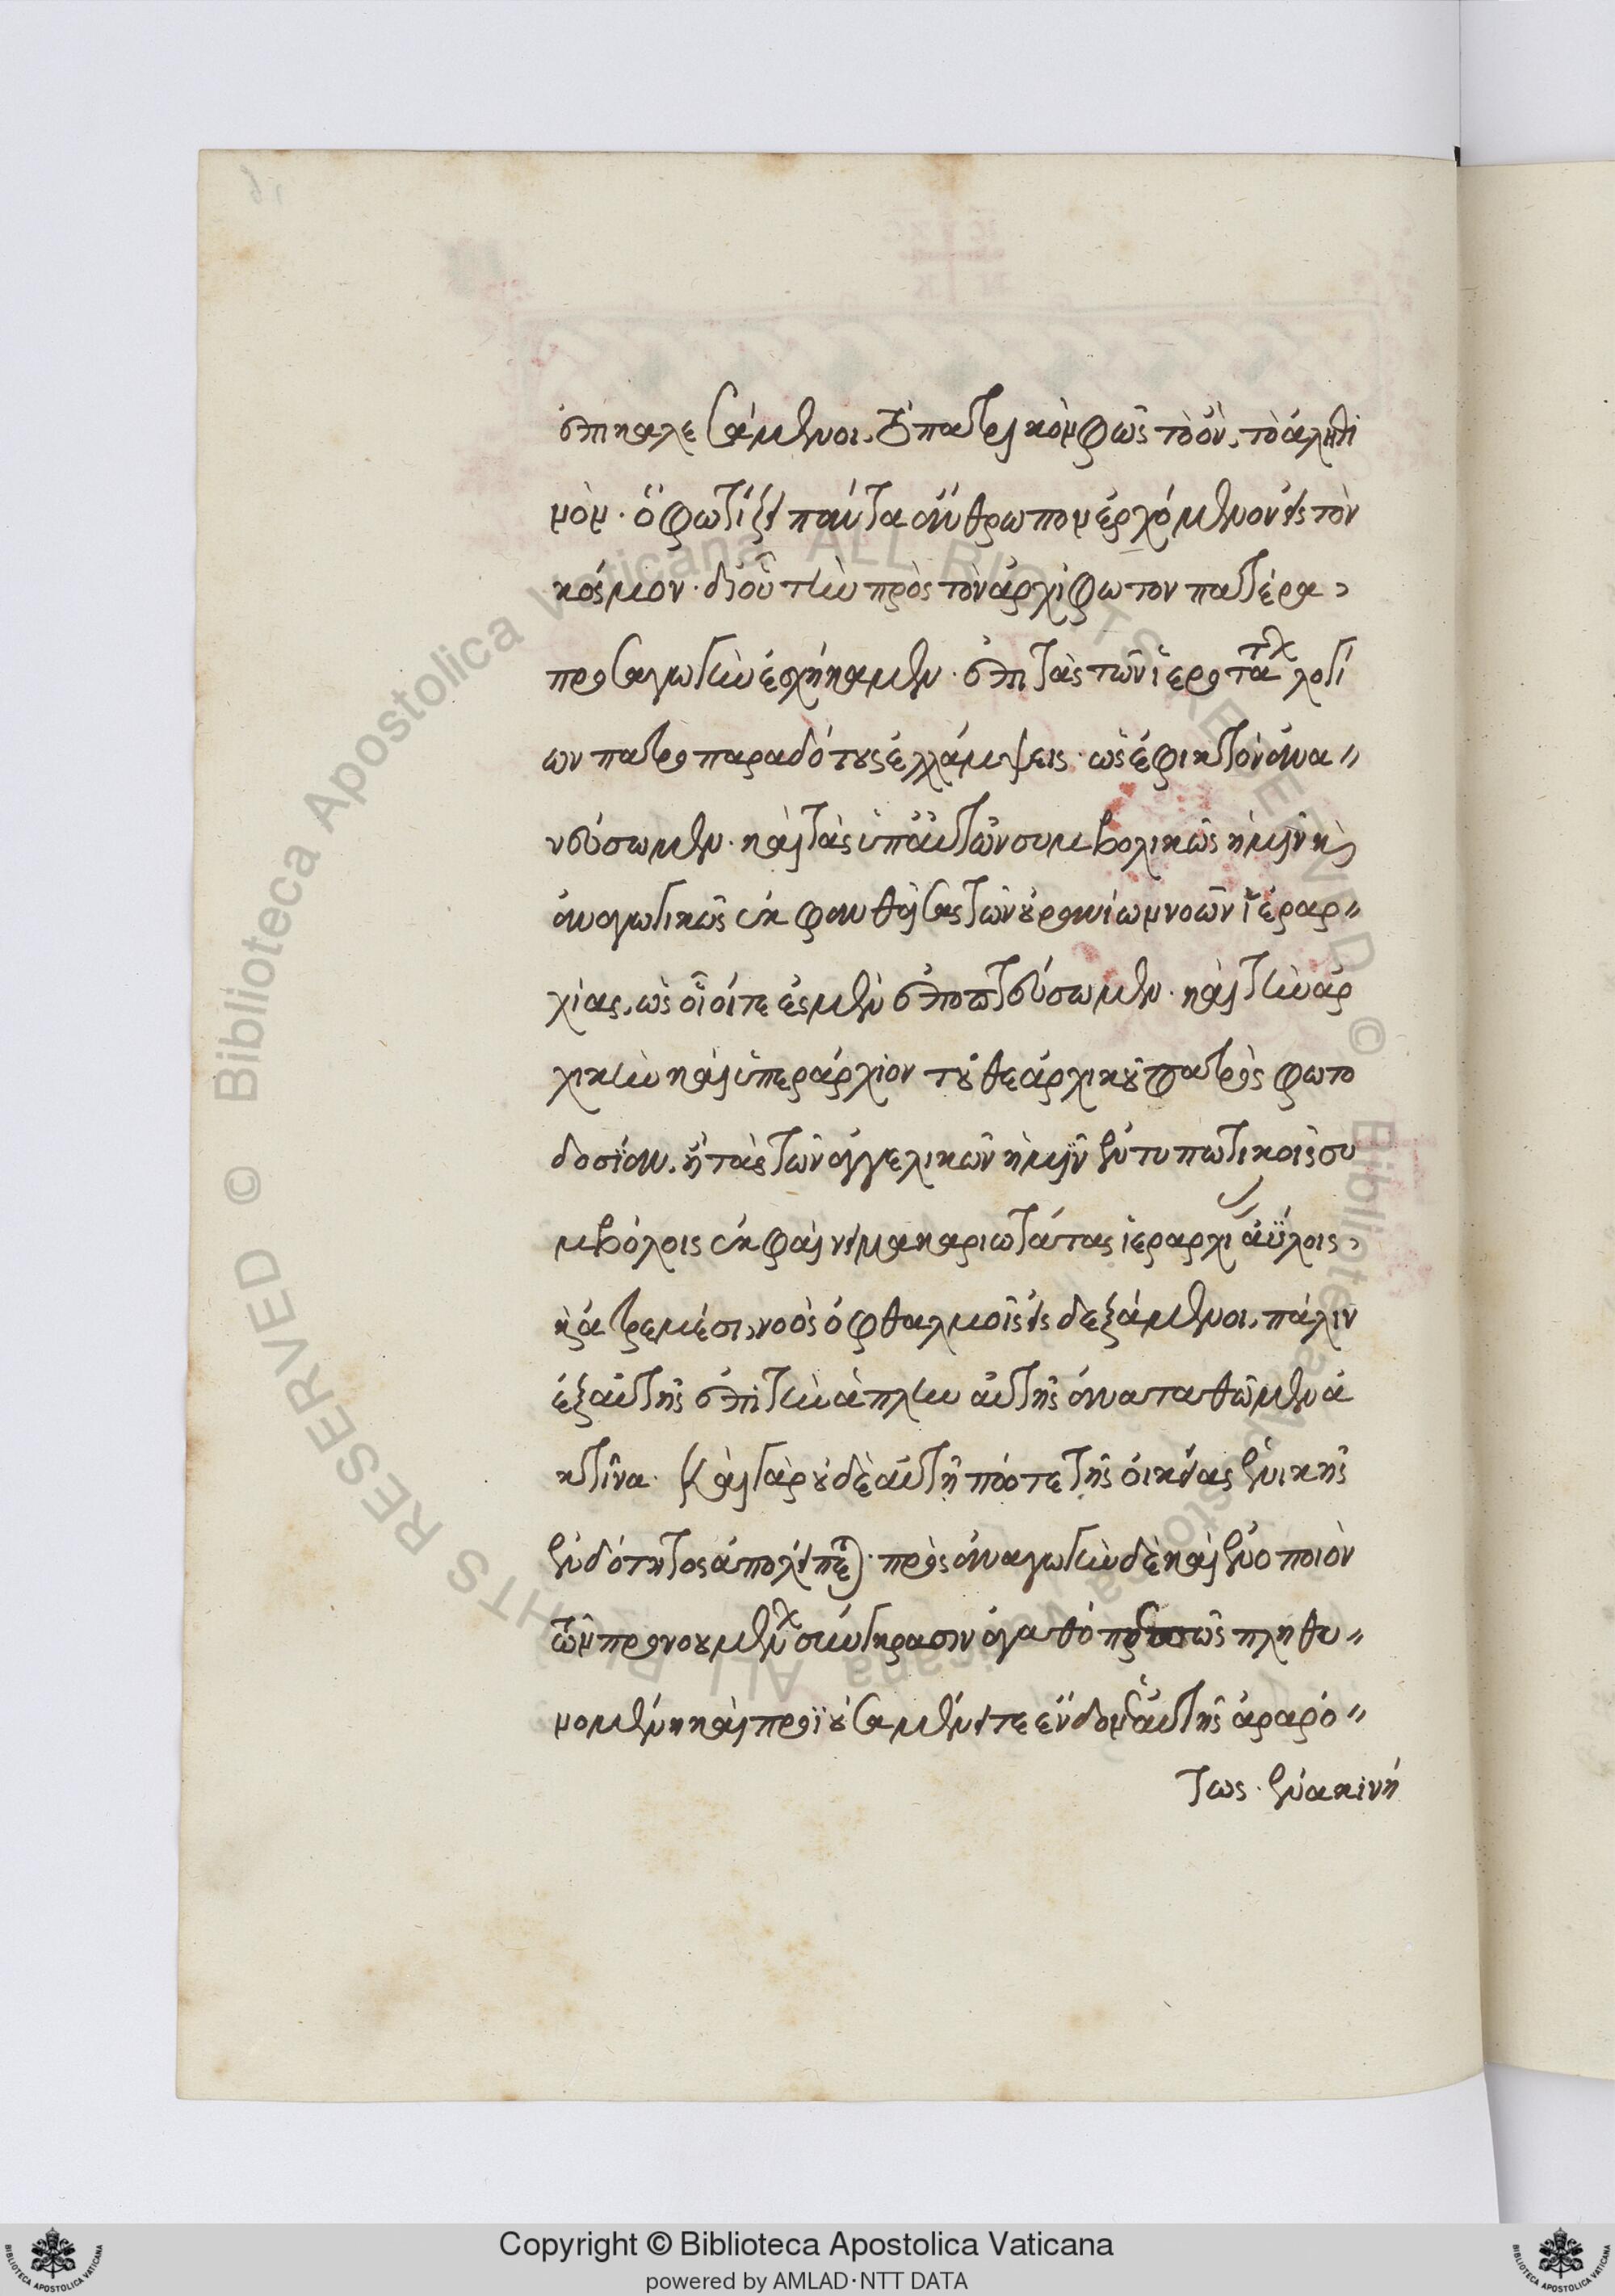 ἐπικαλεσάμενοι, τὸ πατρικὸν φῶς τὸ ὂν, τὸ ἀληθι
νὸν · ὃ φωτίζει πάντα ἄνθρωπον ἐρχόμενον εἰς τὸν
κόσμον · δι' οὗ τὴν πρὸς τὸν ἀρχίφωτον πατέρα
προσαγωγὴν ἐσχήκαμεν · ἐπὶ τὰς τῶν ἱεροτάτων λογί
ων πατροπαραδότους ἐλλάμψεις · ὡς ἐφικτὸν ἀνα〃
νεύσωμεν · καὶ τὰς ὑπ' αὐτῶν συμβολικῶς ἡμῖν κ̀
ἀναγωγικῶς ἐκφανθείσας τῶν οὐρανίων νοῶν ἱεραρ〃
χίας, ὡς οἷοί τε ἐσμὲν ἐποπτεύσωμεν · καὶ τὴν ἀρ
χικὴν καὶ ὑπεράρχιον τοῦ θεαρχικοῦ πατρὸς φωτο
δοσίαν, ἣ τὰς τῶν ἀγγελικῶν ἡμῖν ἐν τυπωτικοῖς συ
μβόλοις ἐκφαίνει μακαριωτάτας ἱεραρχί ἀΰλοις
κ̀ ἀτρεμέσι νοὸς ὀφθαλμοῖς εἰσδεξάμενοι, πάλιν
ἐξ αὐτῆς ἐπὶ τὴν ἁπλῆν αὐτῆς ἀναταθῶμεν ἀ
κτῖνα · Καὶ γὰρ οὐδὲ αὐτὴ πώποτε τῆς οἰκείας ἑνικῆς
ἑνδότητος ἀπολείπεται · πρὸς ἀναγωγὴν δὲ καὶ ἑνοποιὸν
τῶν προνοουμένων σύγκρασιν ἀγαθοπρεπῶς πληθυ〃
νομένη καὶ προϊοῦσα μένει τε ἔνδον ἑαυτῆς ἀραρό〃
τως · ἐν ἀκινή
Copyright © Biblioteca Apostolica Vaticana
powered by AMLAD·NTT DATA